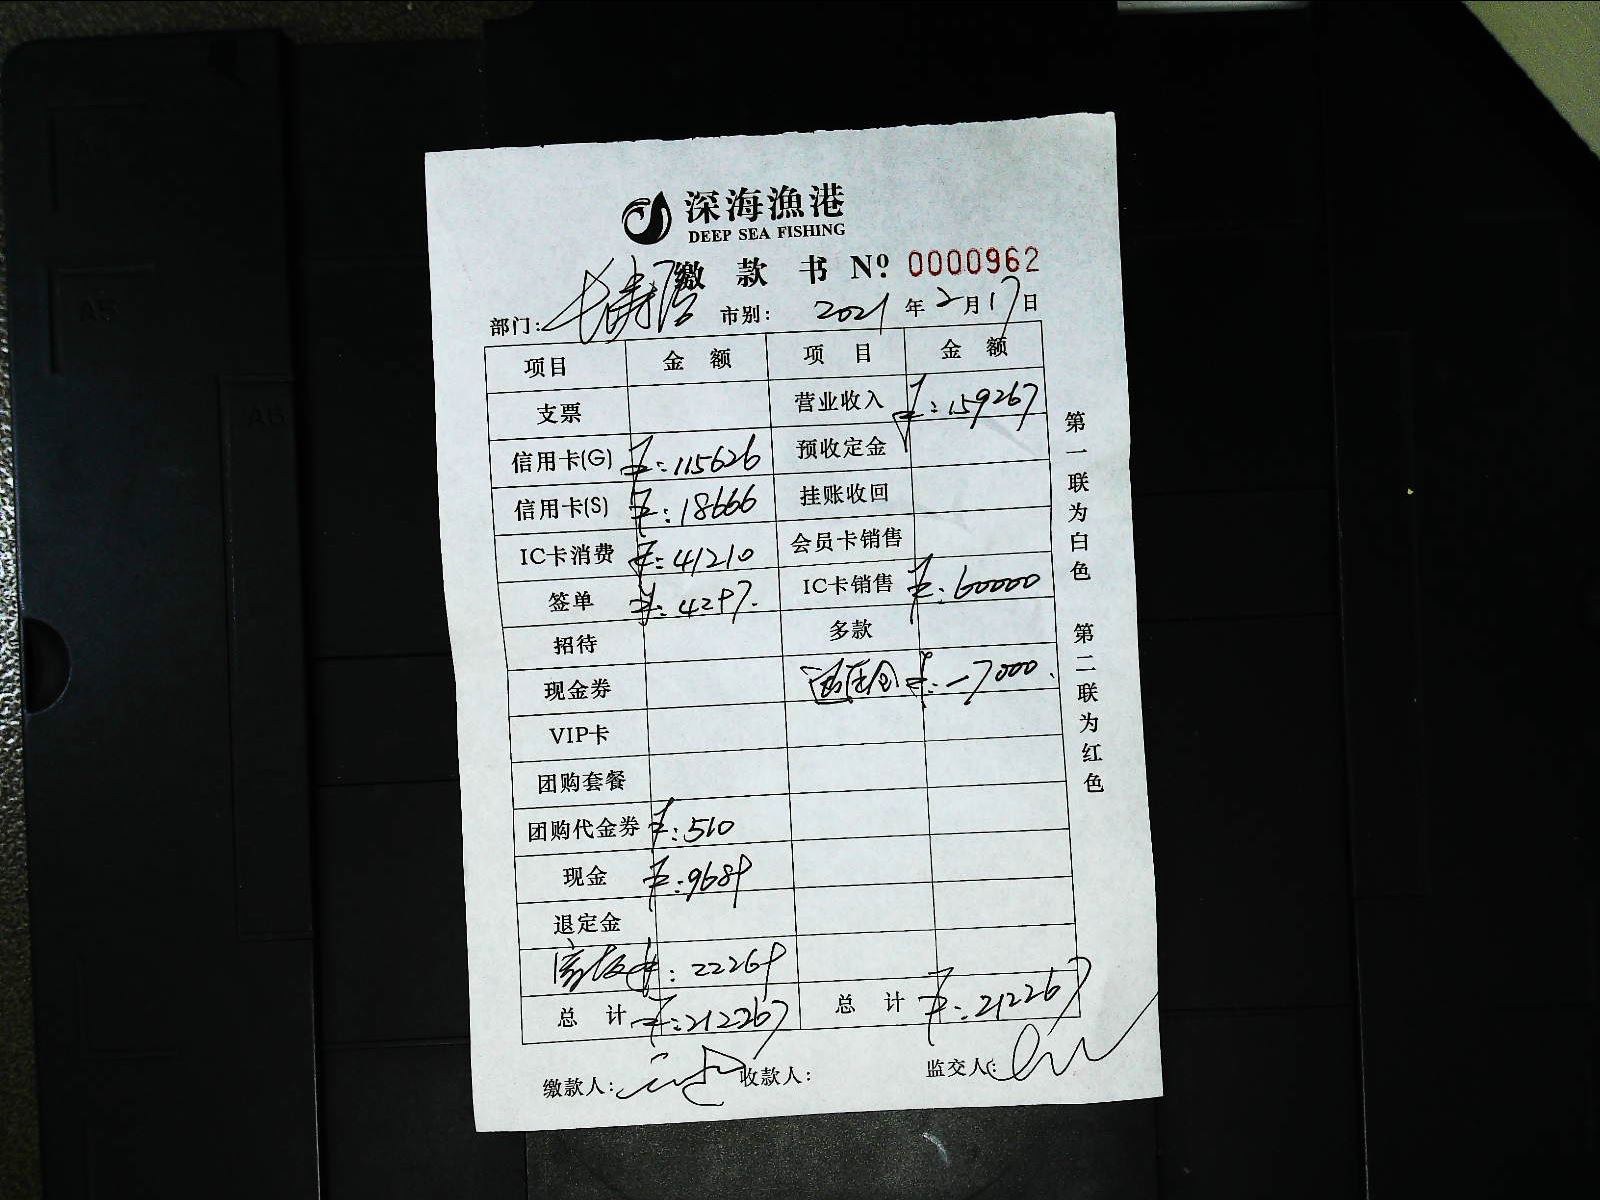 深海漁港
DEEP SEA FISHING
缴款书 Nº 0000962
部门: 市别: 2021 年 2 月 17 日
项目 金额 项目 金额
支票 营业收入 ¥:159267
信用卡(G) ¥:115626 预收定金
信用卡(S) ¥:18666 挂账收回
IC卡消费 ¥:41210 会员卡销售
签单 ¥:4297. IC卡销售 ¥:60000
招待 多款
现金券 退定金 ¥:-7000.
VIP卡
团购套餐
团购代金券 ¥:510
现金 ¥:9689
退定金
¥:22269
总计 ¥:212267 总计 ¥:212267
缴款人: 收款人: 监交人:
第一联为白色 第二联为红色